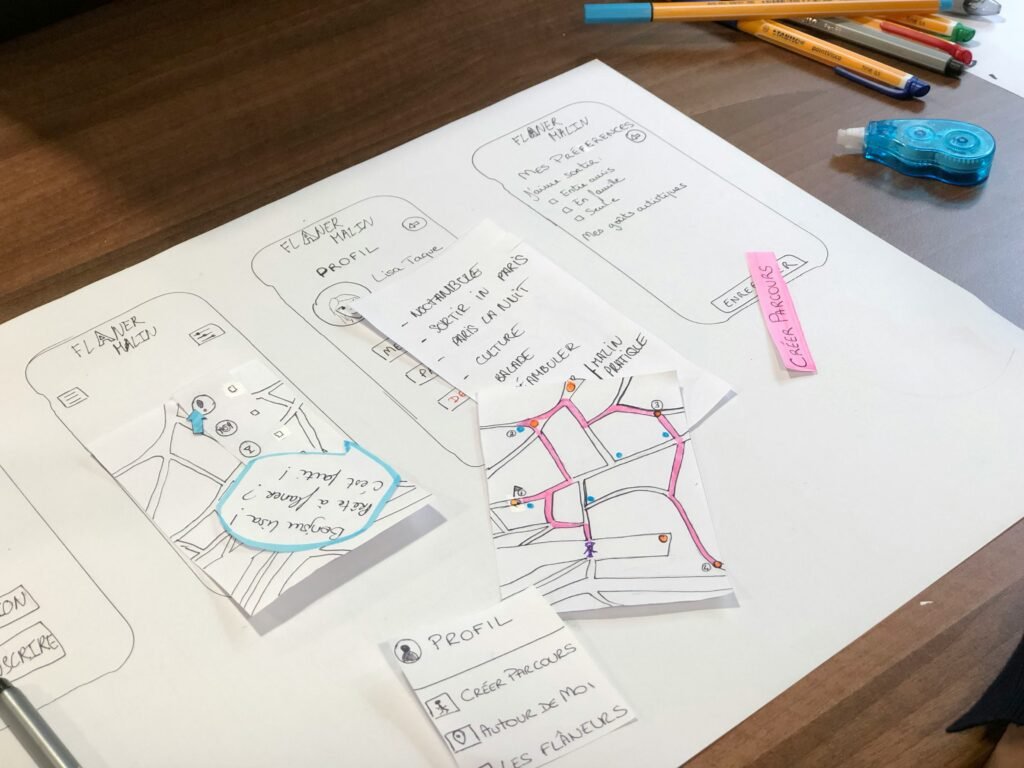 FLÂNER
MALIN
MES PRÉFÉRENCES
J'aime sortir:
Entre amis
En famille
Seule
Mes goûts artistiques
CRÉER PARCOURS
FLÂNER
MALIN
PROFIL
Lisa Taque
- NOCTAMBULE
- SORTIR IN PARIS
- PARIS LA NUIT
- CULTURE
BALADE
MALIN
PRATIQUE
FLÂNER
MALIN
Bonjour Lisa!
Prête à flâner?
C'est parti!
2
3
4
PROFIL
CRÉER PARCOURS
AUTOUR DE MOI
LES FLÂNEURS